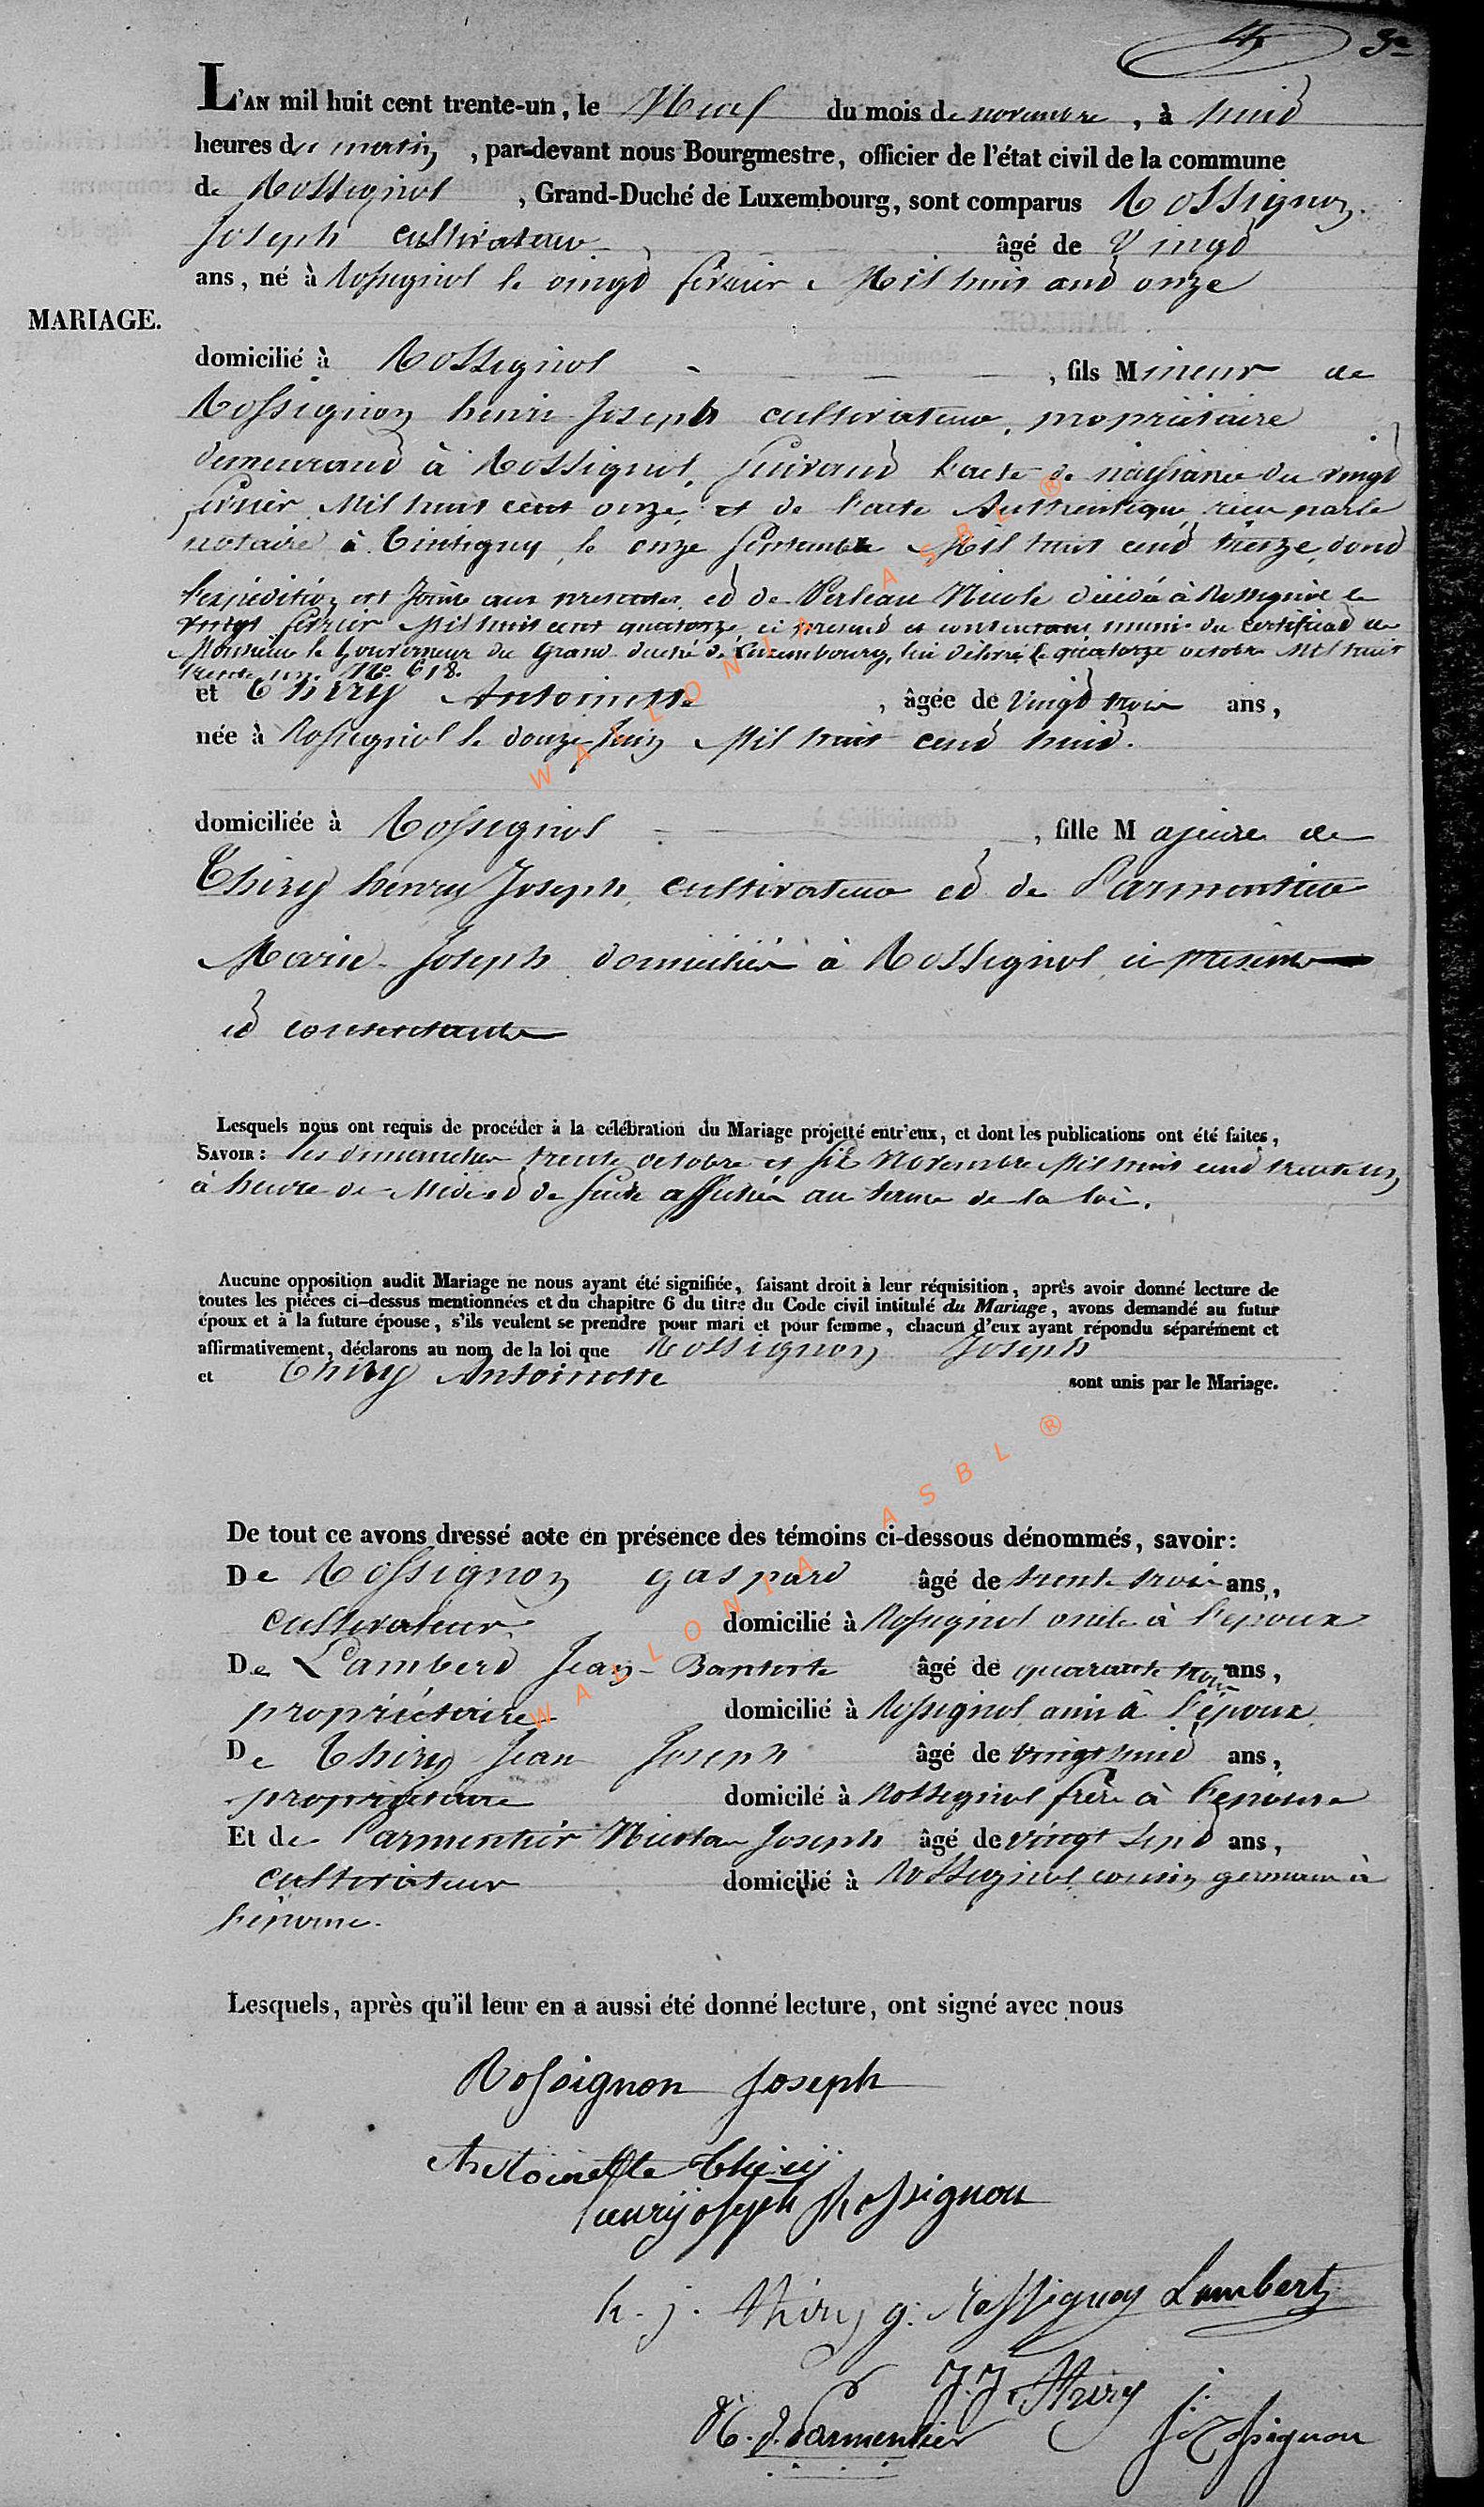 4 5e
L'AN mil huit cent trente-un, le Neuf du mois de novembre, à huid
heures du matin, par-devant nous Bourgmestre, officier de l'état civil de la commune
de Rossignol, Grand-Duché de Luxembourg, sont comparus Rossignon
Joseph cultivateur âgé de Vingd
ans, né à Rossignol le vingd février Mil huit cend onze
MARIAGE.
domicilié à Rossignol, fils Mineur de
Rossignon henri Joseph cultivateur, propriétaire
demeurand à Rossignol, suivand l'acte de naissance du vingd
février Mil huit cent onze, et de l'acte Authentique, par le
notaire à Tintigny, le onze Septembre Mil huit cend treize, dond
l'expédition est jointe aux présentes, ed de Perleau Nicole décédée à Rossignol le
vingt février Mil huit cent quatorze, ci présend et consentant muni du certificad de
Monsieur le Gouverneur du Grand-duché de Luxembourg, lui délivré le quatorze octobre Mil huit
trente un. No. 618.
et Thiry Antoinette, âgée de Vingd trois ans,
née à Rossignol le douze Juin Mil huit cend huid.
domiciliée à Rossignol, fille Majeure de
Thiry henry Joseph, cultivateur ed de Parmentier
Marie-Joseph domiciliés à Rossignol, ci présents
ed consentants
Lesquels nous ont requis de procéder à la célébration du Mariage projetté entr'eux, et dont les publications ont été faites,
SAVOIR: les dimanches trente octobre et six Novembre Mil huit cend trente un,
à heure de Midi ed de suite affichés au terme de la loi.
Aucune opposition audit Mariage ne nous ayant été signifiée, faisant droit à leur réquisition, après avoir donné lecture de
toutes les pièces ci-dessus mentionnées et du chapitre 6 du titre du Code civil intitulé du Mariage, avons demandé au futur
époux et à la future épouse, s'ils veulent se prendre pour mari et pour femme, chacun d'eux ayant répondu séparément et
affirmativement, déclarons au nom de la loi que Rossignon Joseph
et Thiry Antoinette sont unis par le Mariage.
De tout ce avons dressé acte en présence des témoins ci-dessous dénommés, savoir:
De Rossignon gaspard âgé de trente trois ans,
cultivateur domicilié à Rossignol oncle à l'époux
De Lamberd Jean-Baptiste âgé de quarante trois ans,
propriétaire domicilié à Rossignol ami à l'époux
De Thiry Jean Joseph âgé de vingt huid ans,
propriétaire domicilé à Rossignol frère à l'épouse
Et de Parmentier Nicolas Joseph âgé de vingt sepd ans,
cultivateur domicilié à Rossignol cousin germain à
l'épouse.
Lesquels, après qu'il leur en a aussi été donné lecture, ont signé avec nous
Rossignon Joseph
Antoinette Thiry
henry joseph Rossignon
h. j. Thiry g. Rossignon Lambert
J. J. Thiry
N. J. Parmentier J. Rossignon
WALLONIA ASBL ®
WALLONIA ASBL ®